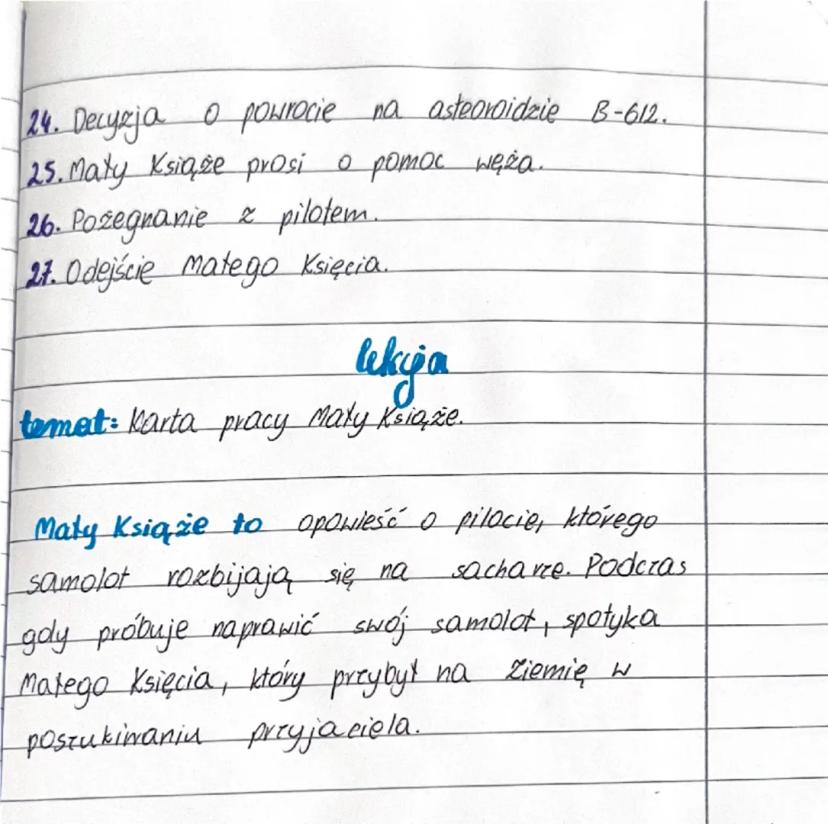 24. Decyzja o powrocie na asteoroidzie B-612.
25. Mały Książe prosi o pomoc węża.
26. Pożegnanie z pilotem.
27. Odejście Małego Księcia.
lekcja
temat: Karta pracy Mały Książe.
Mały Książe to opowieść o pilocie, którego
samolot rozbijają się na sacharze. Podczas
gdy próbuje naprawić swój samolot, spotyka
Małego Księcia, który przybył na Ziemię w
poszukiwaniu przyjaciela.